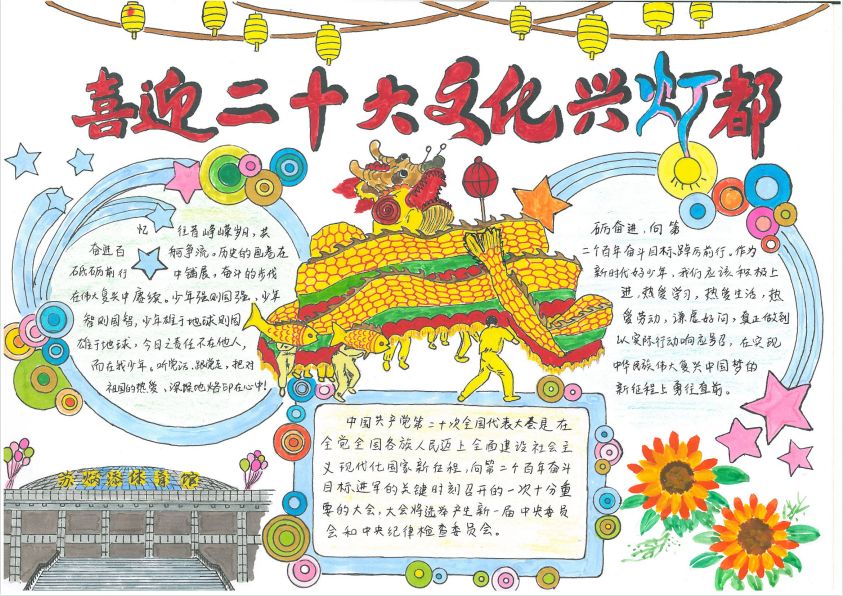 喜迎二十大文化兴灯都
忆往昔峥嵘岁月,共
奋进百舸争流。历史的画卷在
砥砺前行中铺展,奋斗的步伐
在伟大复兴中赓续。少年强则国强,少年
智则国智,少年雄于地球则国
雄于地球,今日之责任不在他人,
而在我少年。听党话、跟党走,把对
祖国的热爱、深深地烙印在心中!
砺奋进,向第
二个百年奋斗目标,踔厉前行。作为
新时代好少年,我们应该积极上
进,热爱学习,热爱生活,热
爱劳动,谦虚好问,真正做到
以实际行动响应号召,在实现
中华民族伟大复兴中国梦的
新征程上勇往直前。
中国共产党第二十次全国代表大会是在
全党全国各族人民迈上全面建设社会主
义现代化国家新征程,向第二个百年奋斗
目标进军的关键时刻召开的一次十分重
要的大会,大会将选举产生新一届中央委员
会和中央纪律检查委员会。
体育馆